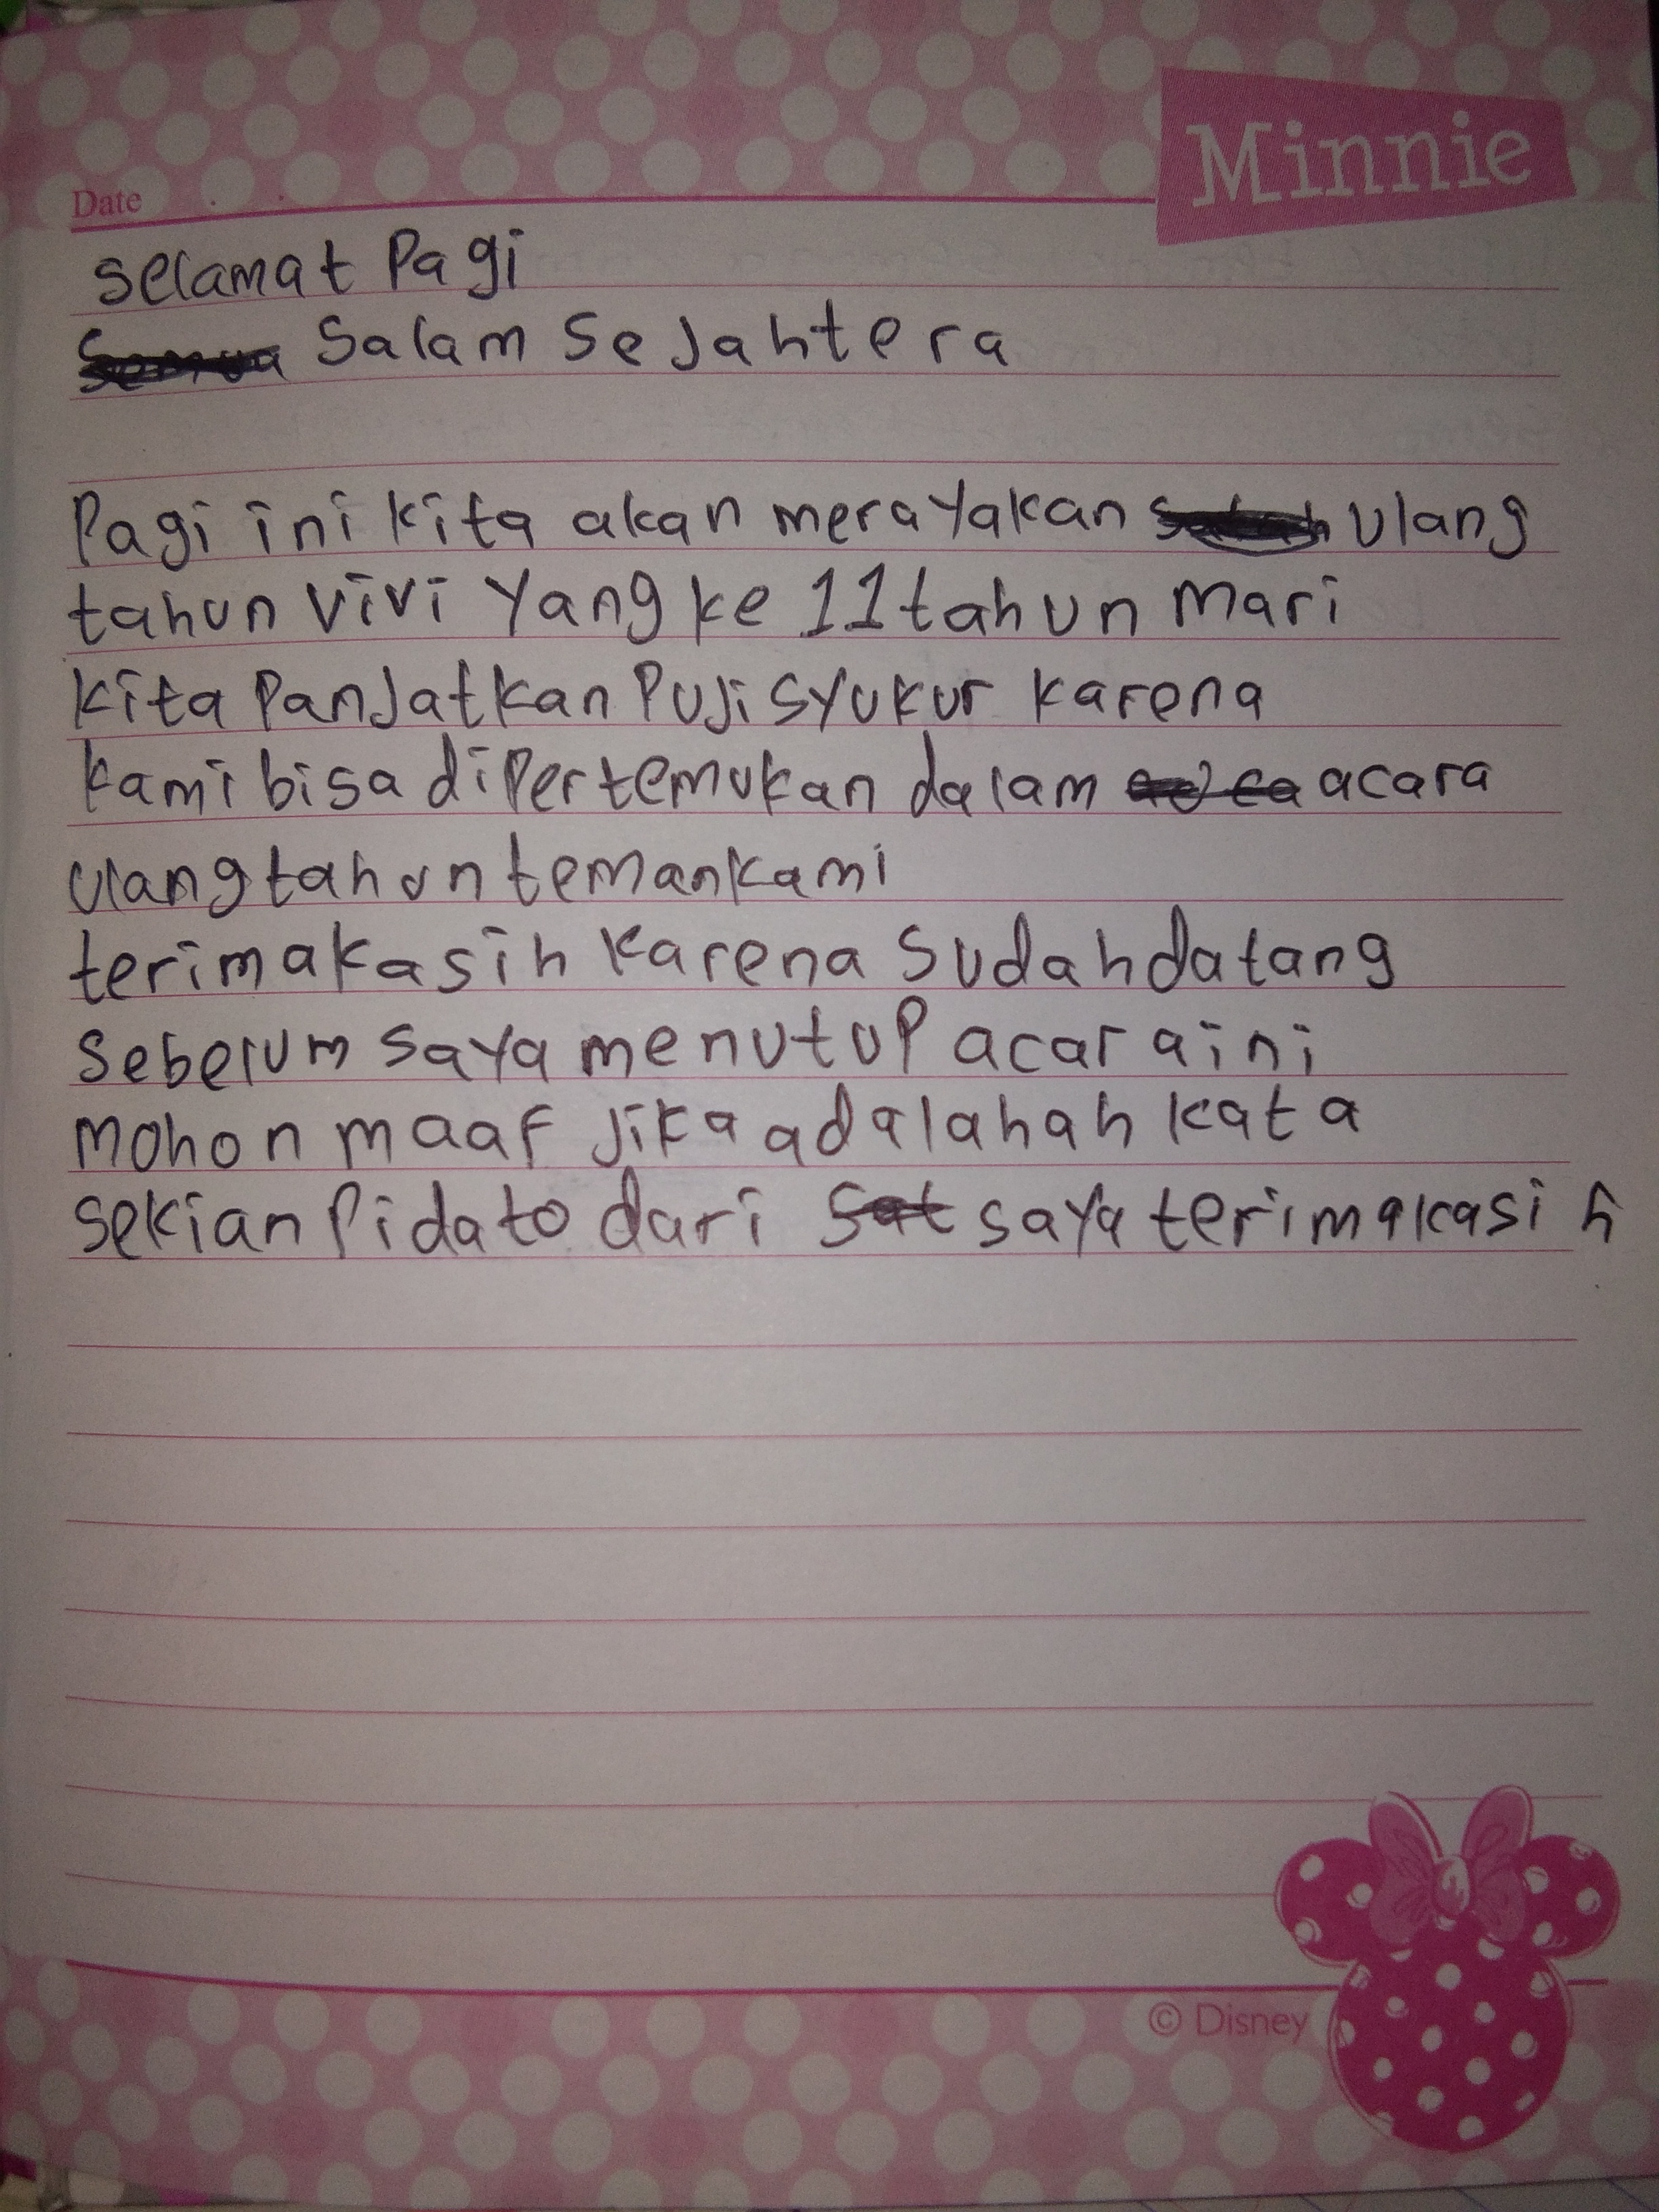 Minnie
Date
selamat Pagi
Salam Sejahtera
Pagi ini kita akan merayakan ulang
tahun vivi Yang ke 11 tahun Mari
Kita Panjatkan Puji syukur karena
kami bisa diPertemukan dalam acara
ulang tahun teman kami
terimakasih karena sudah datang
sebelum saya menutuP acara ini
mohon maaf jika adalahah kata
sekian Pidato dari saya terimakasih
© Disney